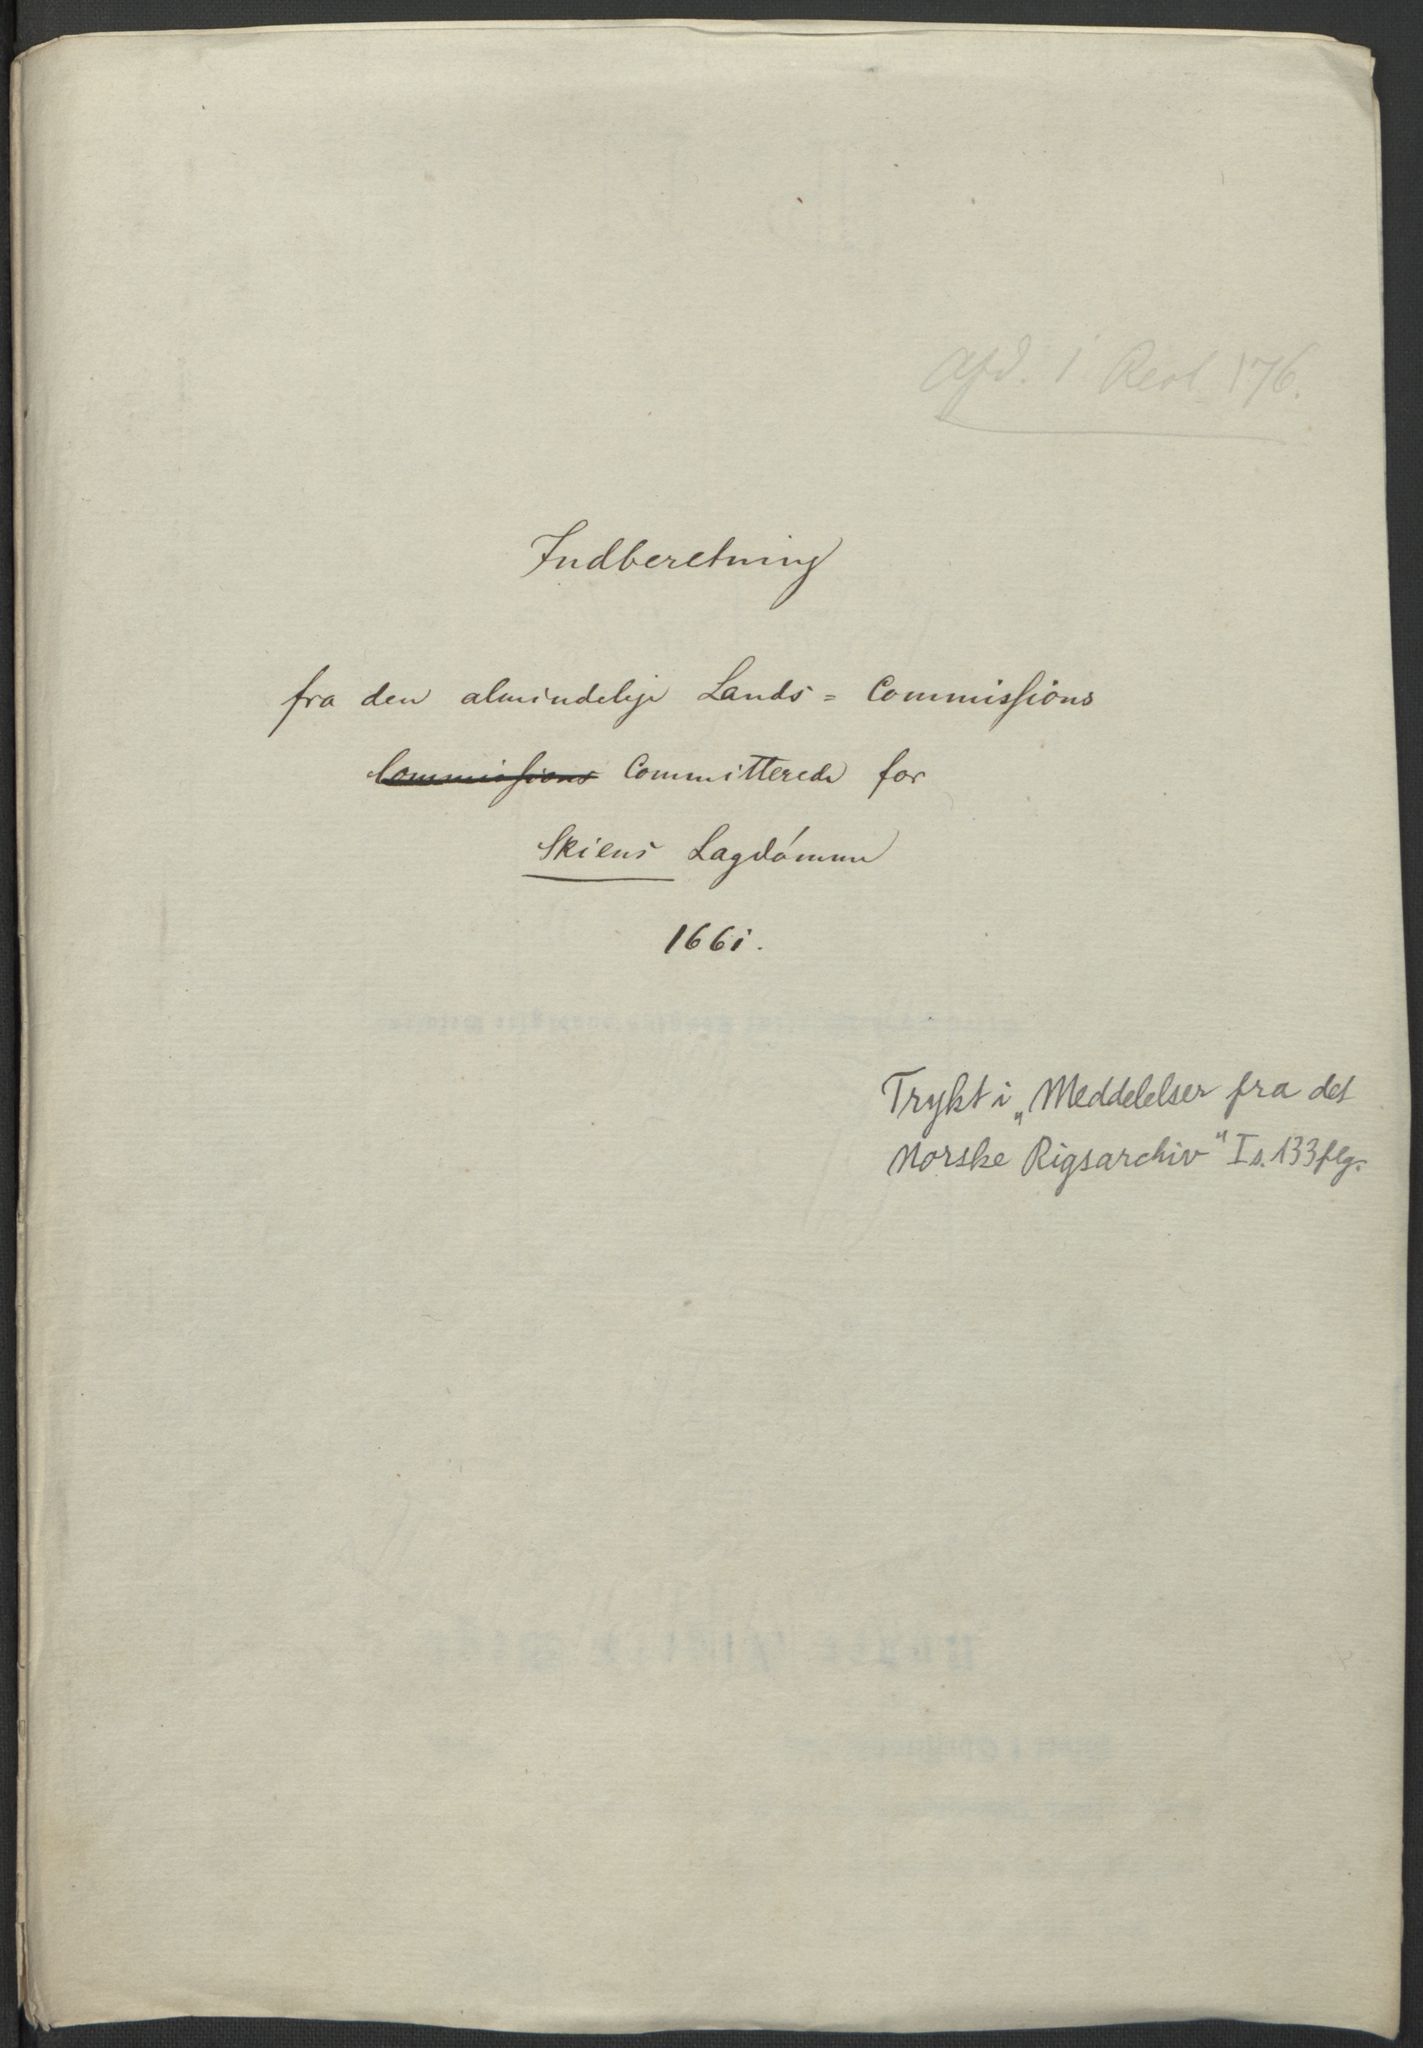 Afd. 1 Reol 176.
Indberetning
fra den almindelige Lands = Commissions
Commissions Committerede for
Skiens Lagdømme
1661.
Trykt i „Meddelelser fra det
Norske Rigsarchiv" I s. 133 flg.